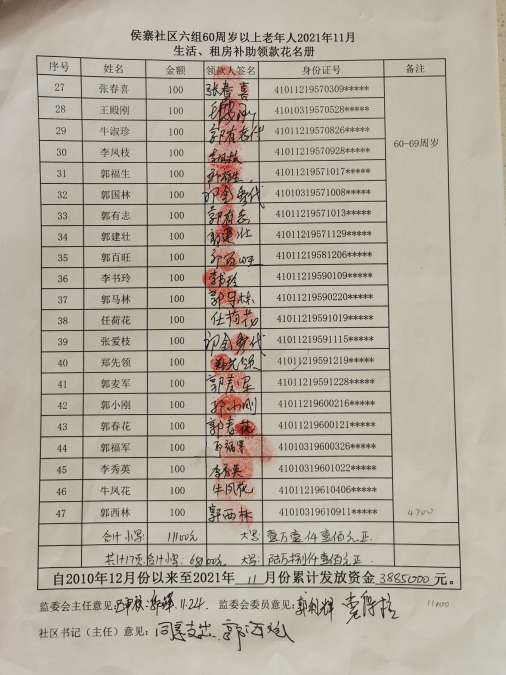 侯寨社区六组60周岁以上老年人2021年11月
生活、租房补助领款花名册
序号 姓名 金额 领款人签名 身份证号 备注
27 张春喜 100 张春喜 41011219570309*****
28 王殿刚 100 41010319570528*****
29 牛淑珍 100 郭有志代 41011219570826***** 60-69周岁
30 李凤枝 100 李凤枝 41011219570928*****
31 郭福生 100 郭福生 41011219571017*****
32 郭国林 100 41010319571008*****
33 郭有志 100 郭有志 41011219571013*****
34 郭建壮 100 郭建壮 41011219571129*****
35 郭百旺 100 郭百旺 41011219581206*****
36 李书玲 100 李书玲 41011219590109*****
37 郭马林 100 郭马林 41011219590220*****
38 任荷花 100 任荷花 41011219591019*****
39 张爱枝 100 41011219591115*****
40 郑先领 100 郑先领 41011219591219*****
41 郭麦军 100 郭麦军 41011219591228*****
42 郭小刚 100 郭小刚 41011219600216*****
43 郭春花 100 郭春花 41011219600121*****
44 郭福军 100 41010319600326*****
45 李秀英 100 李秀英 41010319601022*****
46 牛凤花 100 牛凤花 41011219610406*****
47 郭西林 100 郭西林 41010319610911***** 4700
合计小写: 11100元 大写: 壹万壹仟壹佰元正
共计17页合计小写: 大写: 陆万捌仟壹佰元正
自2010年12月份以来至2021年 11 月份累计发放资金 3885000 元。
监委会主任意见: 11.24 监委会委员意见: 11100
社区书记（主任）意见: 同意支出